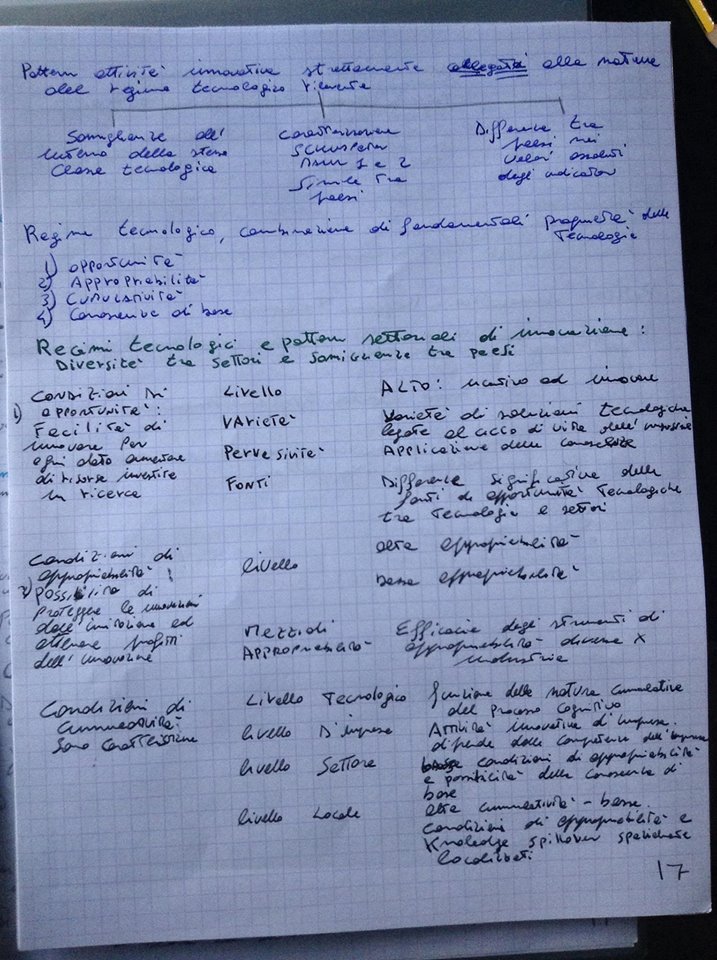 Pattern attività innovativa strettamente collegati alla natura
del regime tecnologico rilevante
Somiglianze all'
interno della stessa
classe tecnologica
caratterizzazione
SCHUMPETER
MARK 1 e 2
simile tra
paesi
Differenze tra
paesi nei
valori assoluti
degli indicatori
Regime tecnologico, combinazione di fondamentali proprietà delle
Tecnologie
1) opportunità
2) Appropriabilità
3) Cumulatività
4) Conoscenze di base
Regimi tecnologici e pattern settoriali di innovazione:
Diversità tra settori e somiglianze tra paesi
1) Condizioni di
opportunità:
Facilità di
innovare per
ogni dato ammontare
di risorse investite
in ricerca
Livello
ALTO: incentivo ad innovare
VArietà
Varietà di soluzioni tecnologiche
legate al ciclo di vita dell'
Pervasività
Applicazione delle conoscenze
FONTI
Differenze significative delle
fonti di opportunità Tecnologiche
tra Tecnologie e settori
2) Condizioni di
appropriabilità:
possibilità di
proteggere le innovazioni
dall'imitazione ed
ottenere profitti
dall'innovazione
livello
alta appropriabilità
bassa appropriabilità
Mezzi di
Appropriabilità
Efficacia degli strumenti di
appropriabilità diversa x
industria
Condizioni di
Cumulatività
sono caratteristiche
Livello Tecnologico
funzione della natura cumulativa
del processo cognitivo
livello D'impresa
Attività innovativa d'impresa
dipende dalle competenze dell'impresa
livello Settore
condizioni di appropriabilità
e della conoscenza di
base
alta cumulatività - bassa
livello Locale
condizioni di appropriabilità e
Knowledge spillover spazialmente
localizzati
17